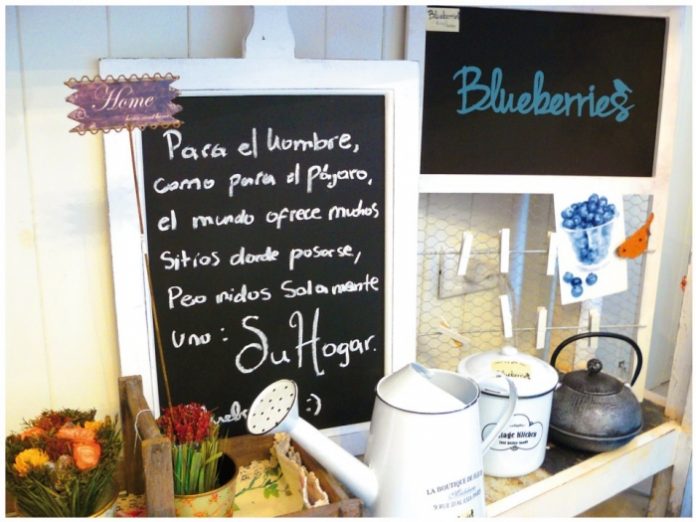 Blueberries
Blueberries
Home
Para el hombre,
como para el Pájaro,
el mundo ofrece muchos
Sitios donde posarse,
Pero nidos Solamente
uno: Su Hogar.
:)
LA BOUTIQUE DE